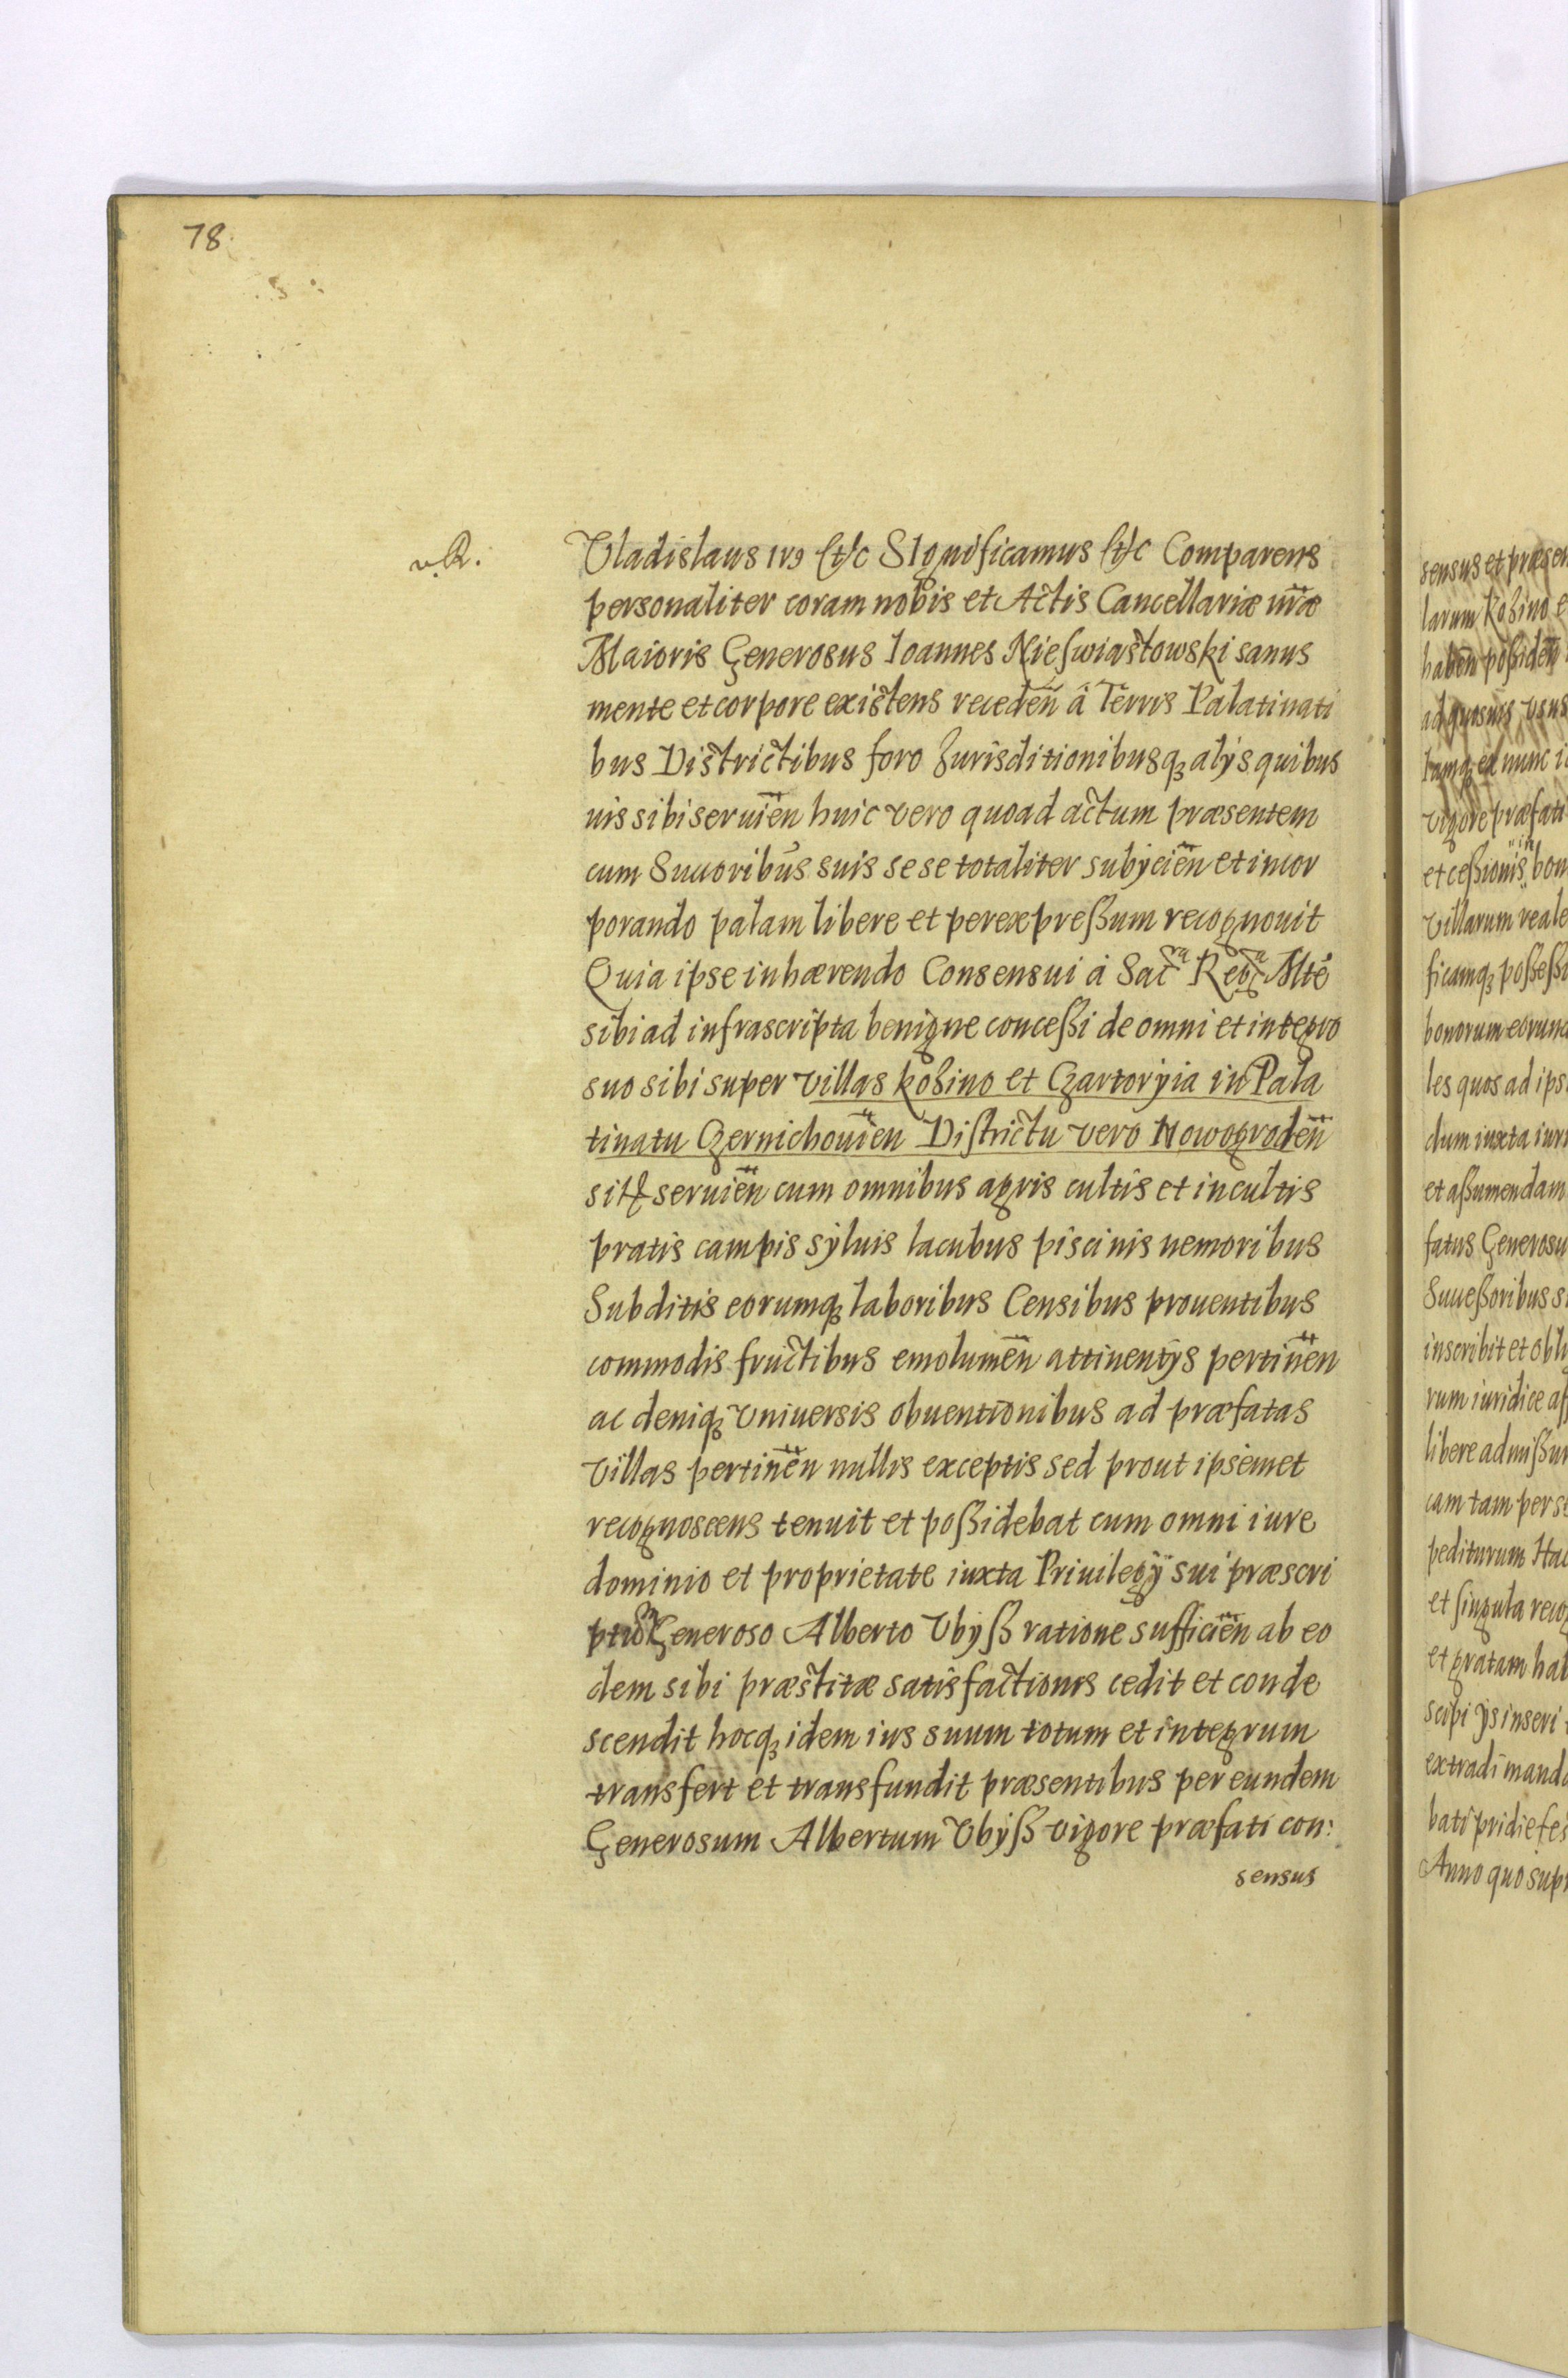 78
v.R.
Vladislaus IV9 &c Significamus &c Comparens
personaliter coram nobis et Actis Cancellariæ nr̃æ
Maioris Generosus Ioannes Nieswiastowski sanus
mente et corpore existens receden̄ â Terris Palatinati
bus Districtibus foro Jurisditionibusqꝫ alijs quibus
uis sibi seruien̄ huic vero quo ad actum præsentem
cum Succoribus suis se se totaliter subijcien̄ et incor
porando palam libere et per expreßum recognouit
Quia ipse inhærendo Consensui á Sacra Rega Mtẽ
sibi ad infrascripta benigne conceßi de omni et integro
suo sibi super villas Kobino et Czartoryia in Pala
tinatu Czernichouien̄ Districtu vero Nowogroden̄
sit& seruien̄ cum omnibus agris cultis et incultis
pratis campis syluis lacubus piscinis nemoribus
Subditis eorumqꝫ laboribus Censibus prouentibus
commodis fructibus emolumen̄ attinentijs pertinen̄
ac deniqꝫ vniuersis obuentionibus ad præfatas
villas pertinen̄ nullis exceptis sed prout ipsemet
recognoscens tenuit et poßidebat cum omni iure
dominio et proprietate iuxta Priuilegij sui præscri
ptum Generoso Alberto Vbyß ratione sufficien̄ ab eo
dem sibi præstitæ satisfactionis cedit et conde
scendit hocqꝫ idem ius suum totum et integrum
transfert et transfundit præsentibus per eundem
Generosum Albertum Vbyß vigore præfati con:
sensus
sensus et præsen
larum Kobino e
haben̄ poßiden̄
ad quosuis vsus
tamqꝫ ex nunc i
vigore præfati
et ceßionis in bon
villarum reale
ficamqꝫ poßeßi
bonorum eorund
les quos ad ips
dum iuxta iuri
et aßumendam
fatus Generosu
Succeßoribus s
inscribit et obli
rum iuridice af
libere admißur
cam tam pers
pediturum Hac
et singula recog
et gratam hab
scipi ijs inseri
extradi manda
bati pridie fes
Anno quo supr